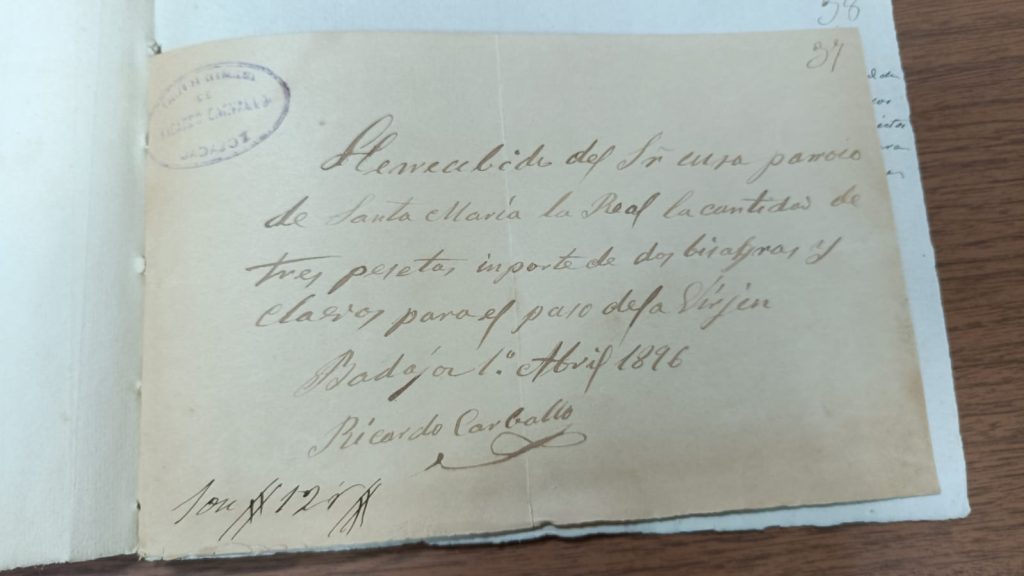 38
37
He recibido del Sr cura parroco
de Santa María la Real la cantidad de
tres pesetas inporte de dos bisagras y
clavos para el paso de la Virjen
Badajoz 1.º Abril 1896
Ricardo Carballo
Son # 12 r #